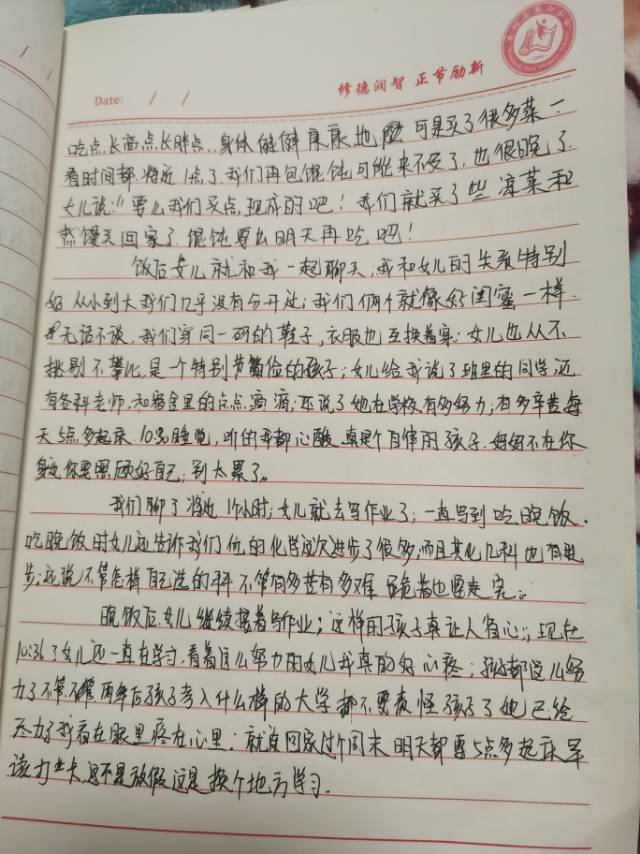 修德润智 正节励新
Date: / /
吃点,长高点长胖点,身体健健康康地 可是买了很多菜一
看时间都将近1点了,我们再包馄饨可能来不及了,也很晚了
女儿说:"要么我们买点现成的吧!我们就买了些凉菜和
蒸馒头回家了,馄饨要么明天再吃吧!
饭后女儿就和我一起聊天,我和女儿的关系特别
好 从小到大我们几乎没有分开过;我们俩个就像好闺蜜一样
无话不说,我们穿同一码的鞋子,衣服也互换着穿;女儿也从不
挑剔不攀比,是一个特别节俭的孩子;女儿给我说了班里的同学,还
有各科老师,和宿舍里的点点滴滴,还说了她在学校有多努力;有多辛苦每
天5点多起床 10:30睡觉,听的我都心酸 真是个自律的孩子 妈妈不在你
身边你要照顾好自己,别太累了。
我们聊了将近1个小时;女儿就去写作业了;一直写到吃晚饭.
吃晚饭时女儿还告诉我们他的化学这次进步了很多,而且其他几科也有进
步;还说不管怎样自己选的科 不管有多苦有多难 跪着也要走完。
晚饭后女儿继续接着写作业;这样的孩子真让人省心;现在
10:36了女儿还一直在学习,看着这么努力的女儿我真的好心疼;孩子都这么努
力了不管 两年后孩子考入什么样的大学都不要责怪孩子了她已经
尽力了我看在眼里疼在心里;就连回家过个周末 明天都要5点多起床 军
该 这不是放假这是换个地方学习.